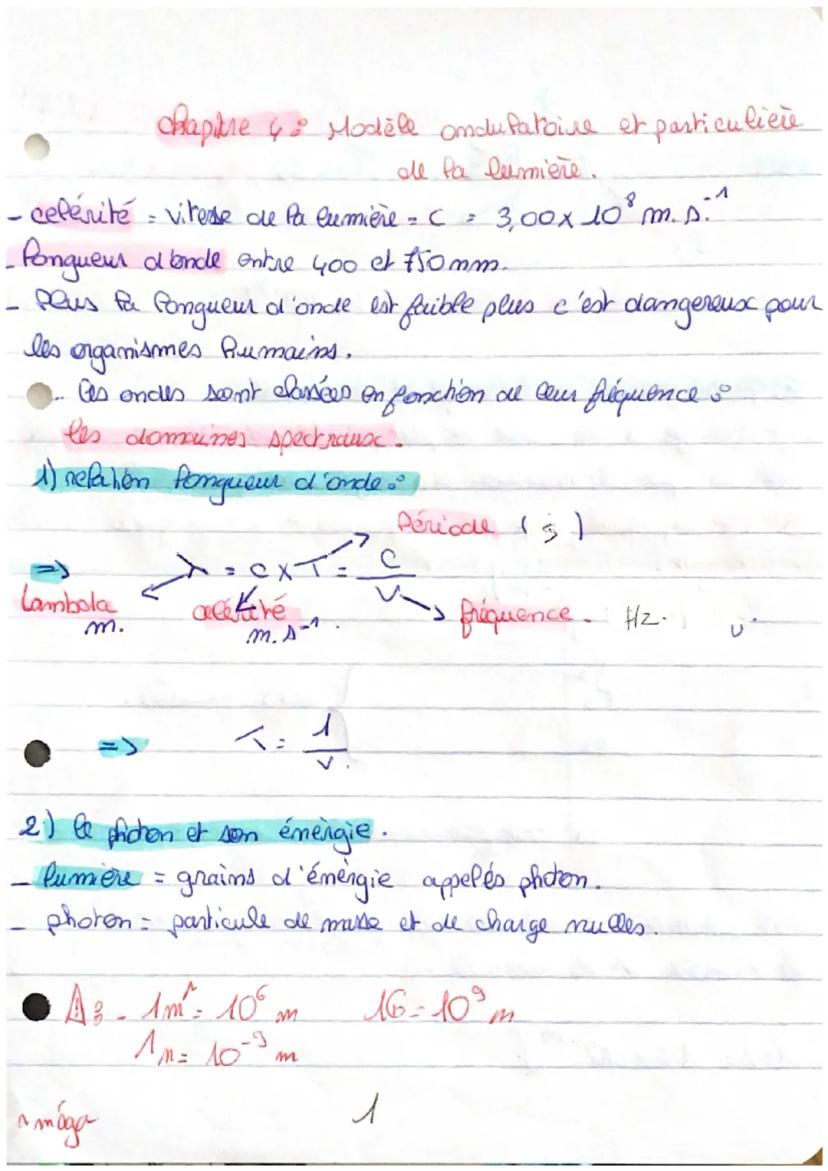 Chapitre 4 : Modèle ondulatoire et particulière
de la lumière.
- celérité = vitesse de la lumière = c = 3,00 x 10⁸ m.s.⁻¹
- longueur d'onde entre 400 et 750 nm.
- Plus la longueur d'onde est faible plus c'est dangereux pour
les organismes humains.
- Ces ondes sont classées en fonction de leur fréquence :
les domaines spectraux.
1) relation longueur d'onde :
Période (s)
=> λ = c x T = c/ν
Lambda célérité fréquence. Hz. ν
m. m.s⁻¹.
=> T = 1/ν.
2) le photon et son énérgie.
- lumière = grains d'énérgie appelés photon.
- photon = particule de masse et de charge nulles.
⚠ : - 1m^ = 10⁶ m 1G = 10⁹ m
1n = 10⁻⁹ m
^ méga 1